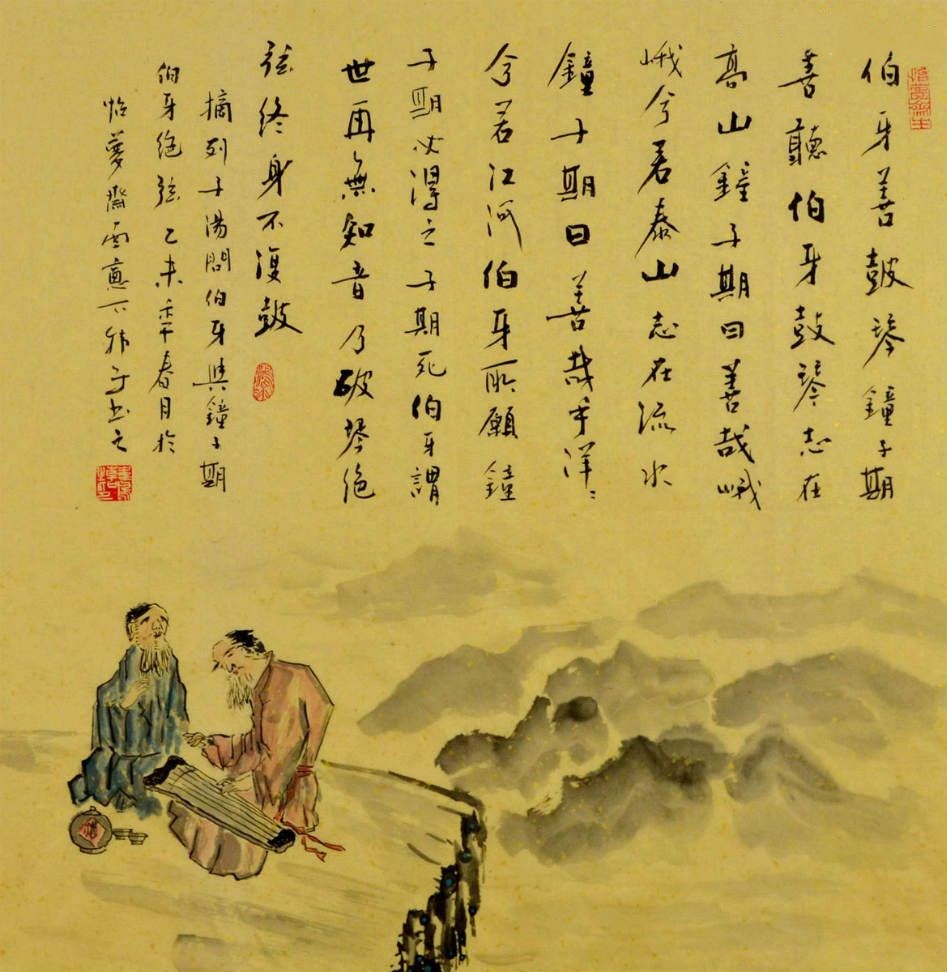 伯牙善鼓琴鐘子期
善聽伯牙鼓琴志在
高山鐘子期曰善哉峨
峨兮若泰山志在流水
鐘子期曰善哉乎洋〻
兮若江河伯牙所願鐘
子期必得之子期死伯牙謂
世再無知音乃破琴絕
弦終身不復鼓
摘列子湯問伯牙與鐘子期
伯牙絕弦乙未年春月於
怡夢齋雲